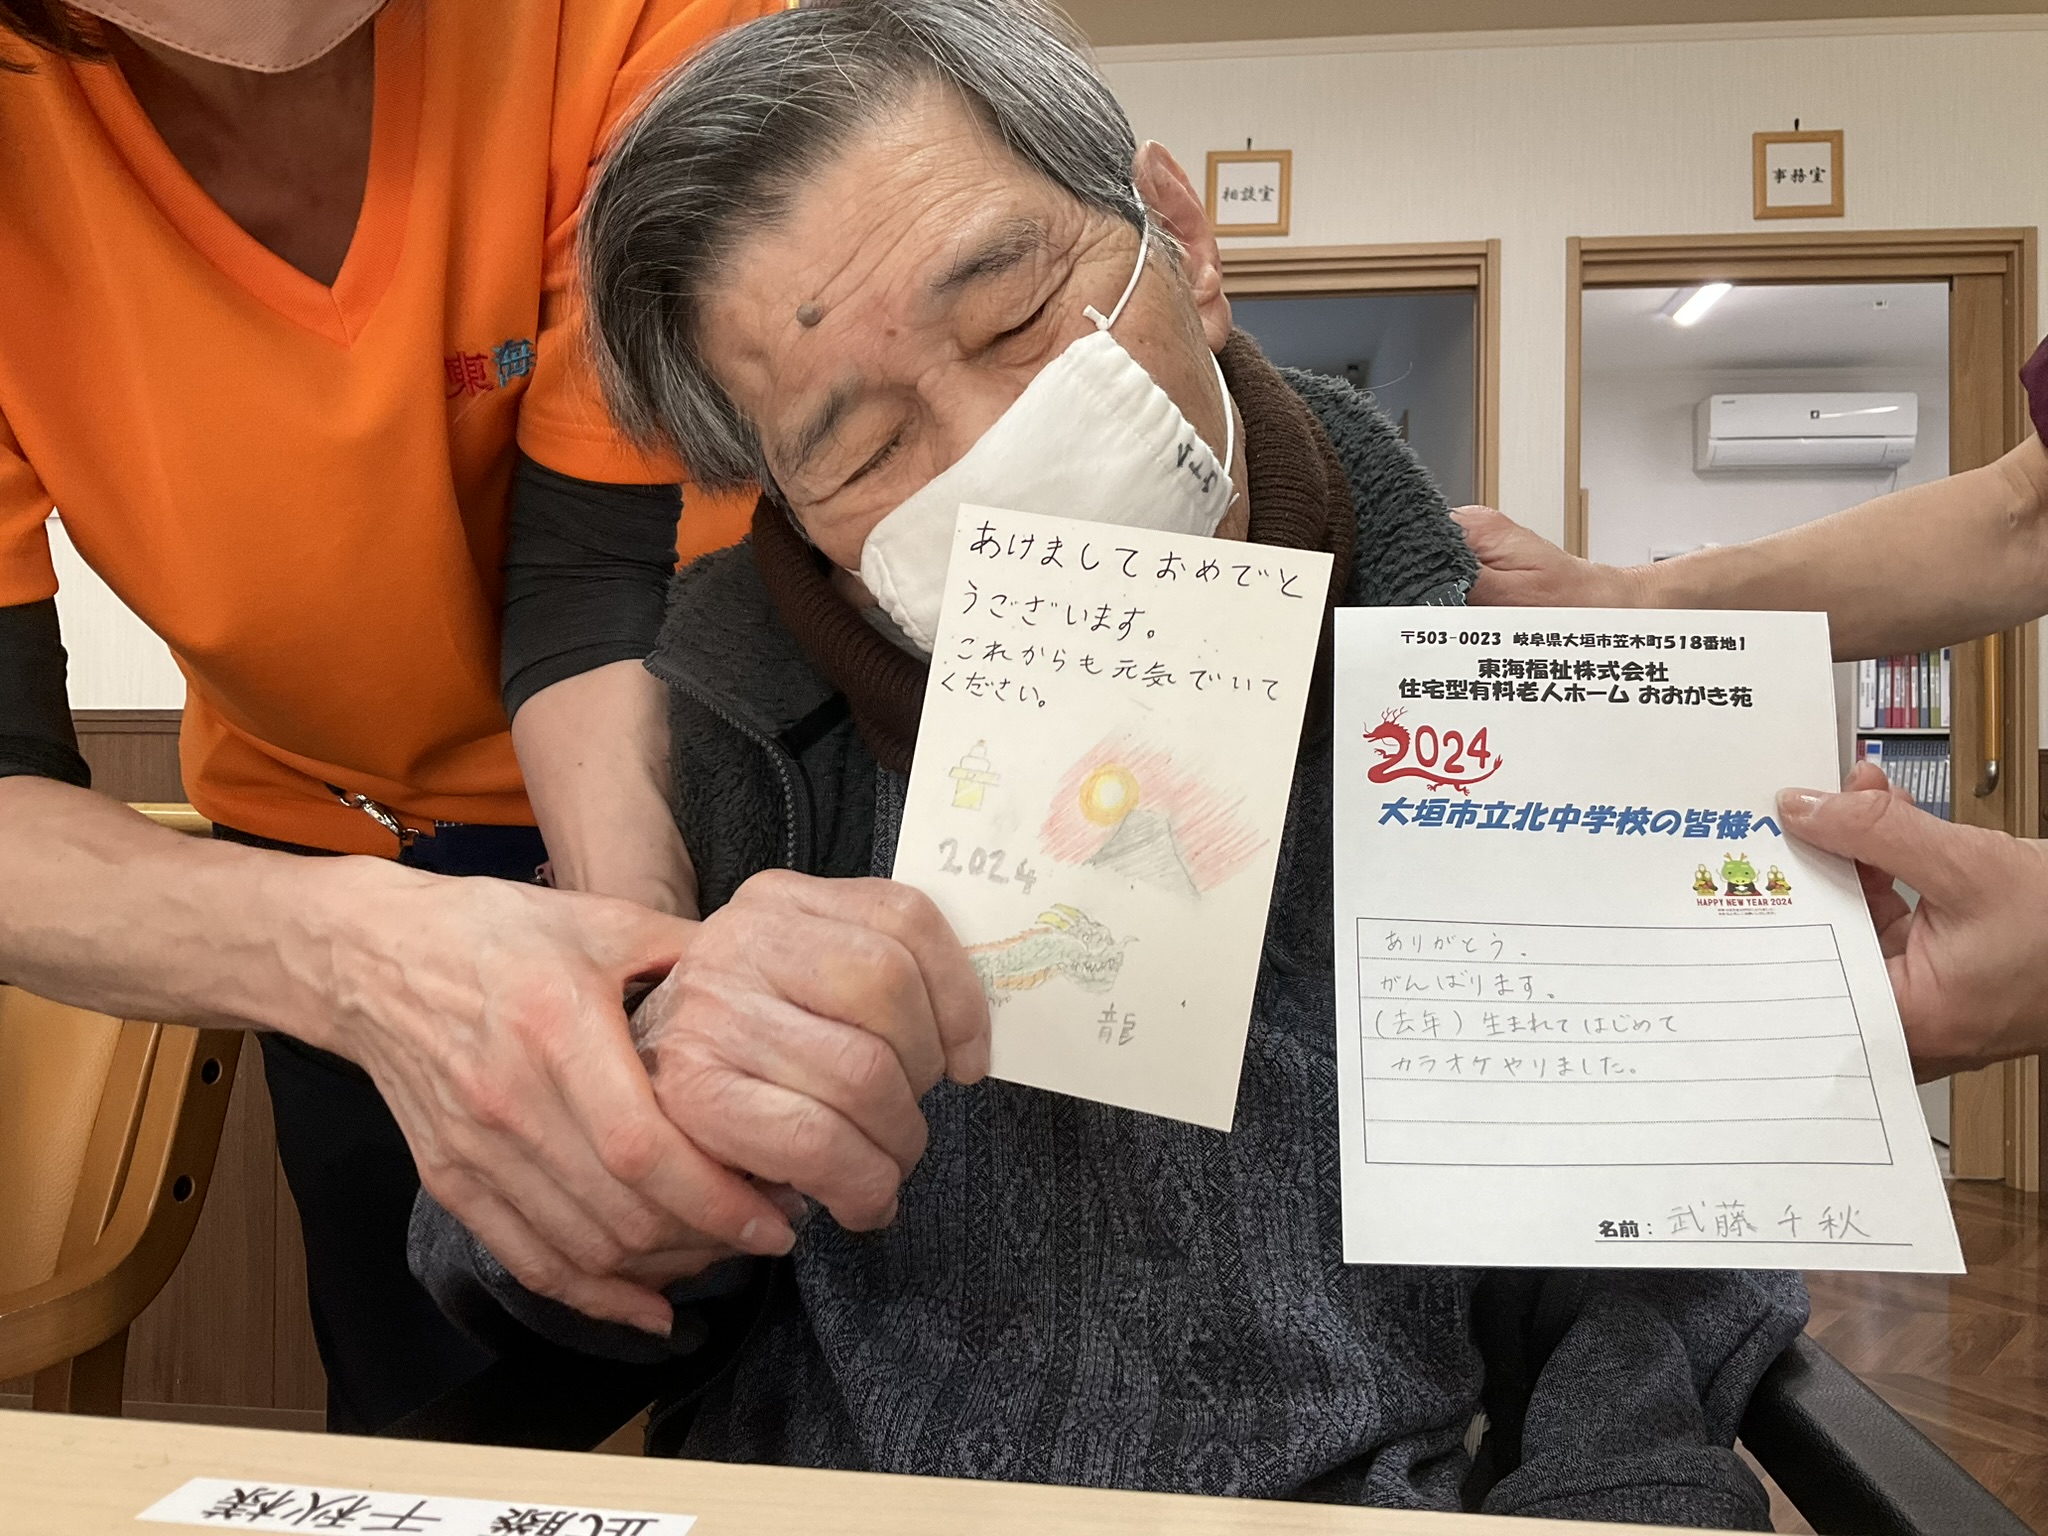 相談室
事務室
東海
むとう
あけましておめでと
うございます。
これからも元気でいて
ください。
2024
龍
〒503-0023 岐阜県大垣市笠木町518番地1
東海福祉株式会社
住宅型有料老人ホーム おおがき苑
2024
大垣市立北中学校の皆様へ
HAPPY NEW YEAR 2024
ありがとう.
がんばります。
(去年) 生まれてはじめて
カラオケやりました。
名前: 武藤 千秋
武藤 千秋様